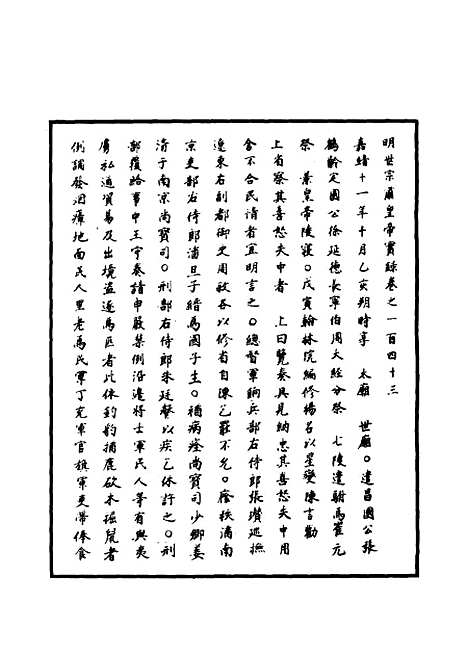 明世宗肅皇帝實錄卷之一百四十三
嘉靖十一年十月乙亥朔時享　太廟　世廟○遣昌國公張
鶴齡定國公徐延德長寧伯周大經分祭　七陵遣駙馬崔元
祭　景皇帝陵寢○戊寅翰林院編修楊名以星變陳言勸
上省察其喜怒失中者　上曰覽奏具見納忠其喜怒失中用
舍不合民請者宜明言之○總督軍餉兵部右侍郎張瓚巡撫
遼東右副都御史周敘各以修省自陳乞罷不允○廕秩滿南
京吏部右侍郎潘旦子緒為國子生○補病痊尚寶司少卿姜
清于南京尚寶司○刑部右侍郎朱廷聲以疾乞休許之○刑
部覆給事中王守奏請申嚴禁例沿邊將士軍民人等有與夷
虜私通貿易及出境盜逐馬匹者比依到豹捕鹿砍木掘鼠者
例謫發烟瘴地面民人里老為民軍丁充軍官旗軍吏帶俸食